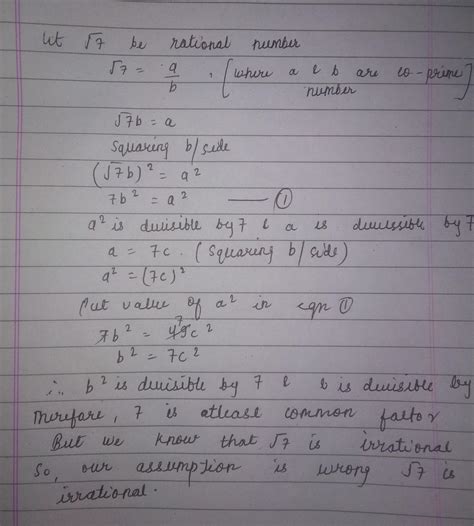 let √7 be rational number
√7 = a/b , [where a & b are co-prime number]
√7b = a
Squaring b/side
(√7b)² = a²
7b² = a² —— ①
a² is divisible by 7 & a is divissible by 7
a = 7c . (Squaring b/side)
a² = (7c)²
Put value of a² in eqn ①
7b² = 49c² 7
b² = 7c²
∴ b² is divisible by 7 & b is divisible by
Therefare, 7 is atlease common factor
But we know that √7 is irrational
So, our assumption is wrong √7 is
irrational.